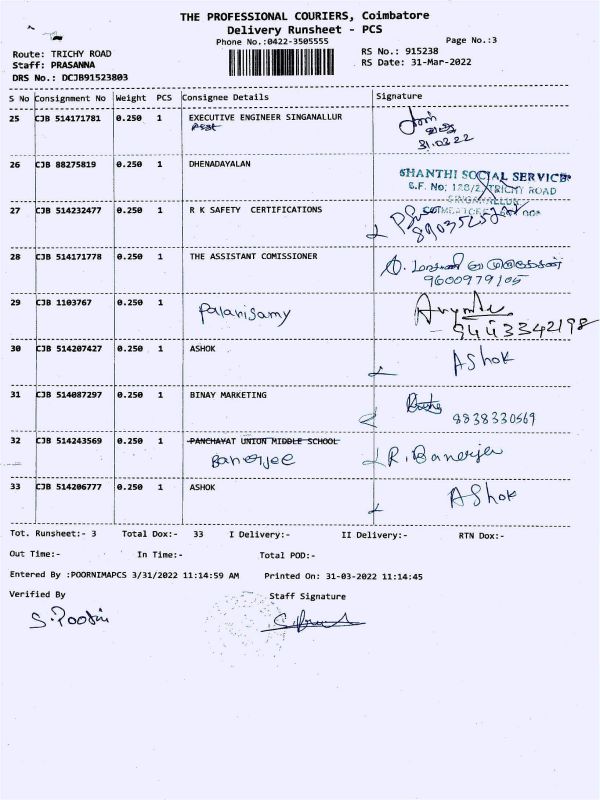 THE PROFESSIONAL COURIERS, Coimbatore
Delivery Runsheet - PCS
Phone No.:0422-3505555
Page No.:3
Route: TRICHY ROAD
RS No.: 915238
Staff: PRASANNA
RS Date: 31-Mar-2022
DRS No.: DCJB91523803
S No Consignment No Weight PCS Consignee Details Signature
25 CJB 514171781 0.250 1 EXECUTIVE ENGINEER SINGANALLUR
31.03.22
26 CJB 88275819 0.250 1 DHENADAYALAN
SHANTHI SOCIAL SERVICE
S.F. No: 128/2, TRICHY ROAD
SINGANALLUR
27 CJB 514232477 0.250 1 R K SAFETY CERTIFICATIONS
28 CJB 514171778 0.250 1 THE ASSISTANT COMISSIONER
9600979105
29 CJB 1103767 0.250 1 Palanisamy
9443342198
30 CJB 514207427 0.250 1 ASHOK AShok
31 CJB 514087297 0.250 1 BINAY MARKETING
8838330569
32 CJB 514243569 0.250 1 PANCHAYAT UNION MIDDLE SCHOOL
Banerjee R. Banerjee
33 CJB 514206777 0.250 1 ASHOK AShok
Tot. Runsheet:- 3 Total Dox:- 33 I Delivery:- II Delivery:- RTN Dox:-
Out Time:- In Time:- Total POD:-
Entered By :POORNIMAPCS 3/31/2022 11:14:59 AM Printed On: 31-03-2022 11:14:45
Verified By Staff Signature